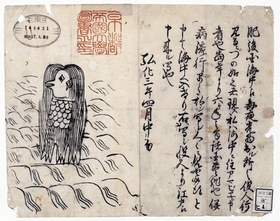 京都
帝國大學
圖書之印
肥後国海中え毎夜光物出ル所之役人行
見るニづの如之者現ス私ハ海中ニ住アマビヱト申
者也当年より六ヶ年之間諸国豊作也併
病流行早々私ヲ写シ人々ニ見セ候得と
申て海中へ入けり右ハ写シ役人より江戸え
申来ル写也
弘化三年四月中旬